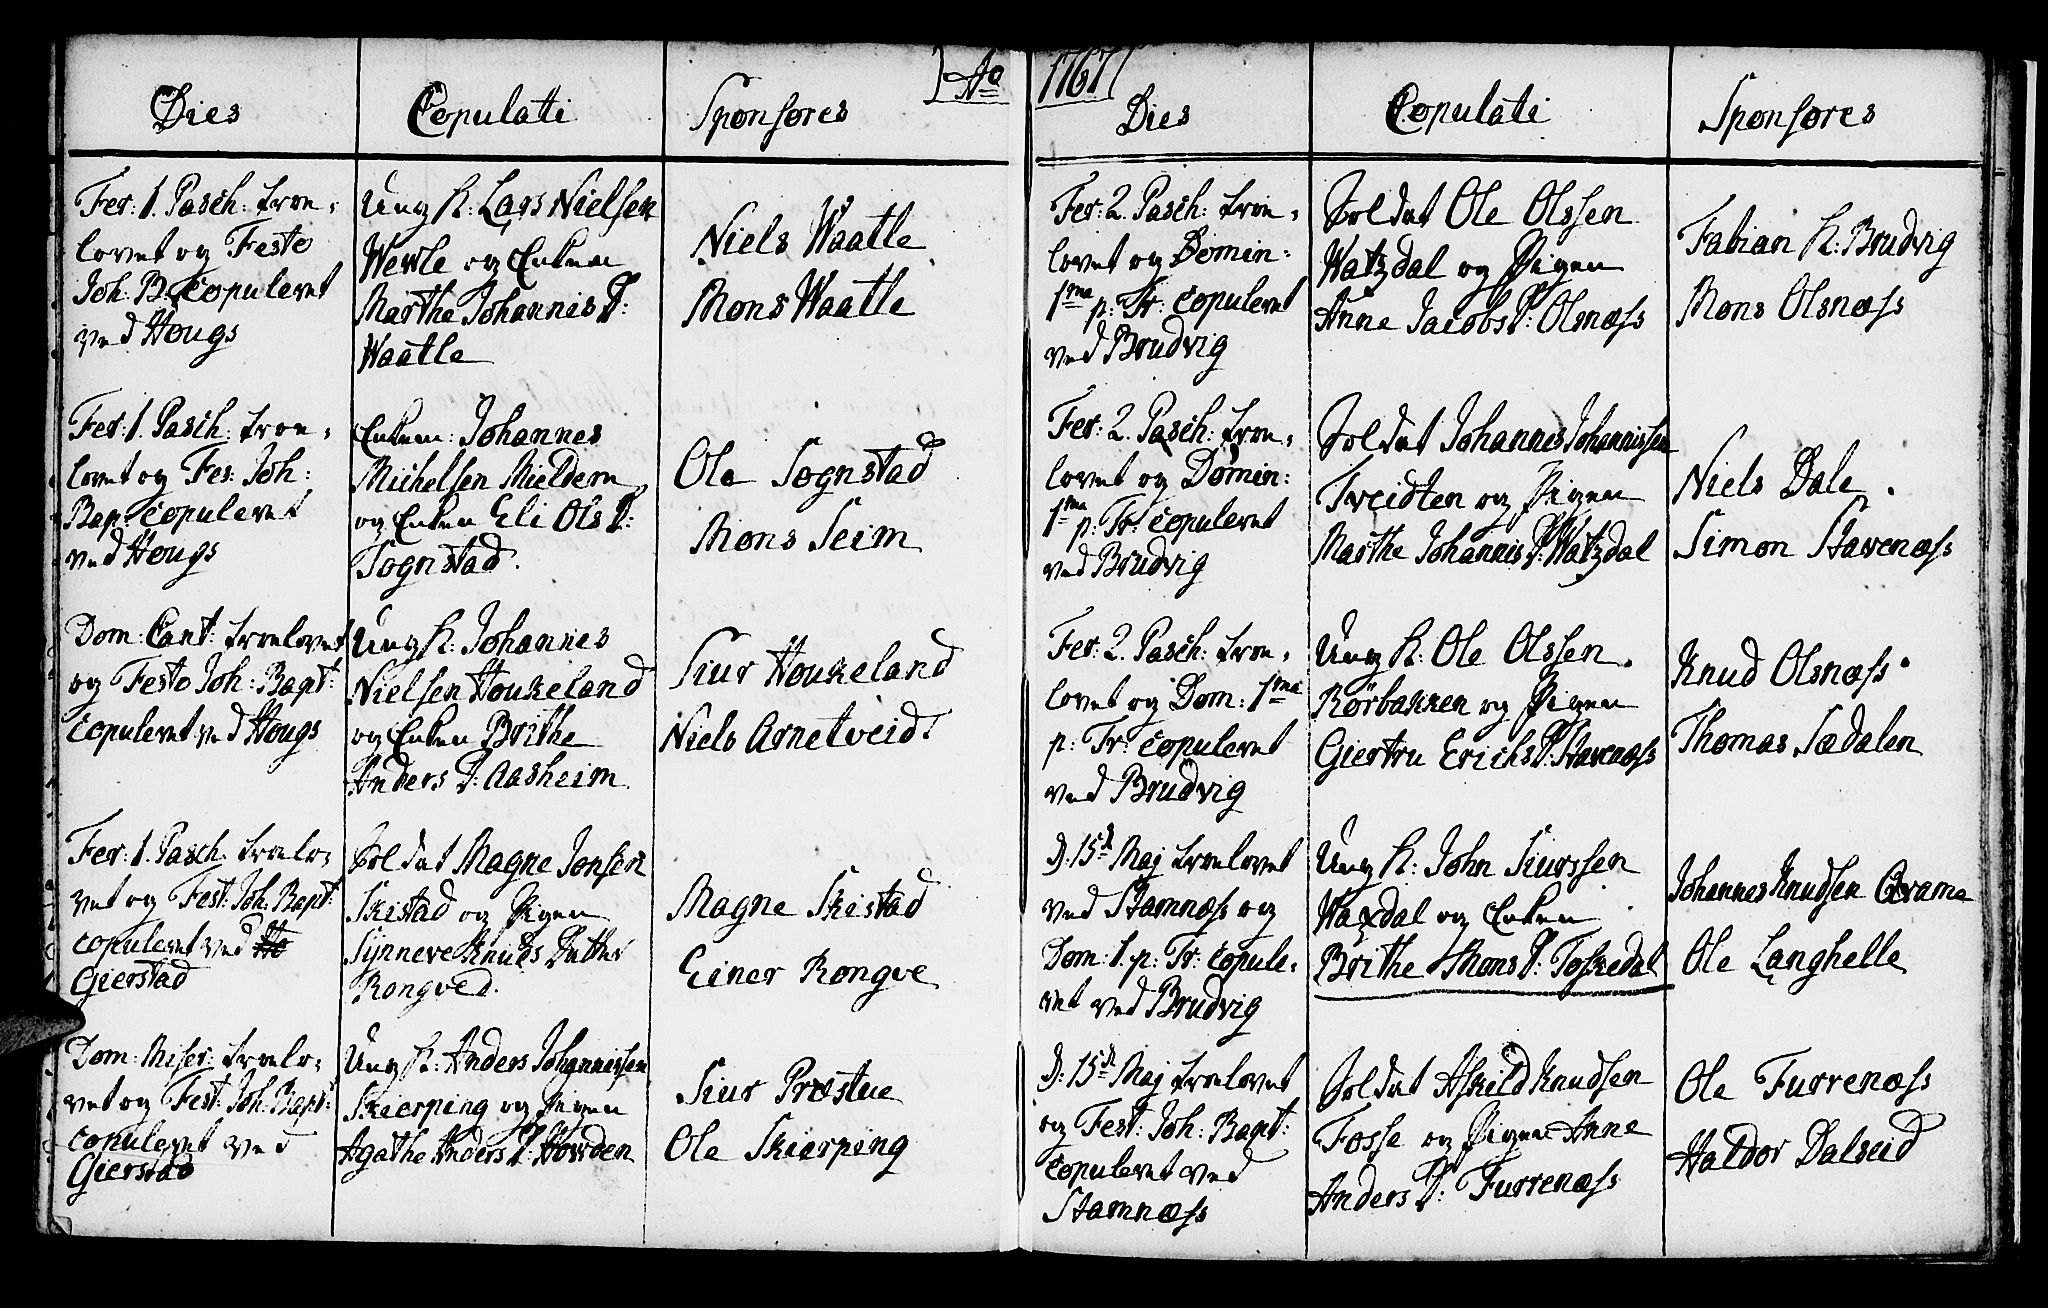 Ao 1767
Dies
Copulati
Sponsores
Fer: 1. Pasch: troe-
lovet og Festo
Joh: B. Copuleret
ved Hougs
Ung K: Lars Nielsen
Werle og Enken
Marthe Johannis D:
Waatle
Niels Waatle
Mons Waatle
Fer: 1. Pasch: troe-
lovet og Fes: Joh:
Bap: Copuleret
ved Hougs
Enkem: Johannes
Michelsen Mieldem
og Enken Eli Ols D:
Sognstad.
Ole Sognstad
Mons Seim
Dom: Cant: troelovet
og Festo Joh: Bapt:
Copuleret ved Hougs
Ung K: Johannes
Nielsen Houkeland
og Enken Brithe
Anders D: Aasheim
Siur Houkeland
Niels Arnetveidt
Fer: 1. Pasch troelo-
vet og Fest: Joh. Bapt:
copuleret ved Ho
Gierstad
Soldat Magne Jonsen
Skistad og Pigen
Synneve Knuds Datter
Rongved.
Magne Skistad
Einer Rongve
Dom: Miser: troelo-
vet og Fest: Joh. Bapt:
copuleret ved
Gierstad
Ung K: Anders Johannissen
Skierping og Pigen
Agathe Anders D: Howden
Siur Præstue
Ole Skierping
Dies
Copulati
Sponsores
Fer: 2. Pasch: troe-
lovet og Domin:
1ma p: Tr: copuleret
ved Brudvig
Soldat Ole Olssen
Watzdal og Pigen
Anne Jacobs D: Olsnæss
Fabian K: Brudvig
Mons Olsnæss
Fer: 2. Pasch: troe-
lovet og Domin:
1ma p: Tr: copuleret
ved Brudvig
Soldat Johannes Johannissen
Tveidten og Pigen
Marthe Johannis D: Watzdal
Niels Dale.
Simon Stavenæss
Fer: 2. Pasch: troe-
lovet og Dom: 1ma
p: Tr: copuleret
ved Brudvig
Ung K: Ole Olssen.
Rörbakken og Pigen
Giertru Erichs D: Stavenæss
Knud Olsnæss
Thomas Sædalen
D. 15de Maj troelovet
ved Stamnæss og
Dom: 1. p: Tr: copule-
ret ved Brudvig
Ung K: John Siurssen
Waxdal og Enken
Brithe Mons D: Toskedal
Johannes Knudsen Qvame
Ole Langhelle
D: 15de Maj troelovet
og Fest: Joh: Bapt:
copuleret ved
Stamnæss
Soldat Askild Knudsen
Fosse og Pigen Anne
Anders D: Furrenæss
Ole Furrenæss
Haldor Dalseid